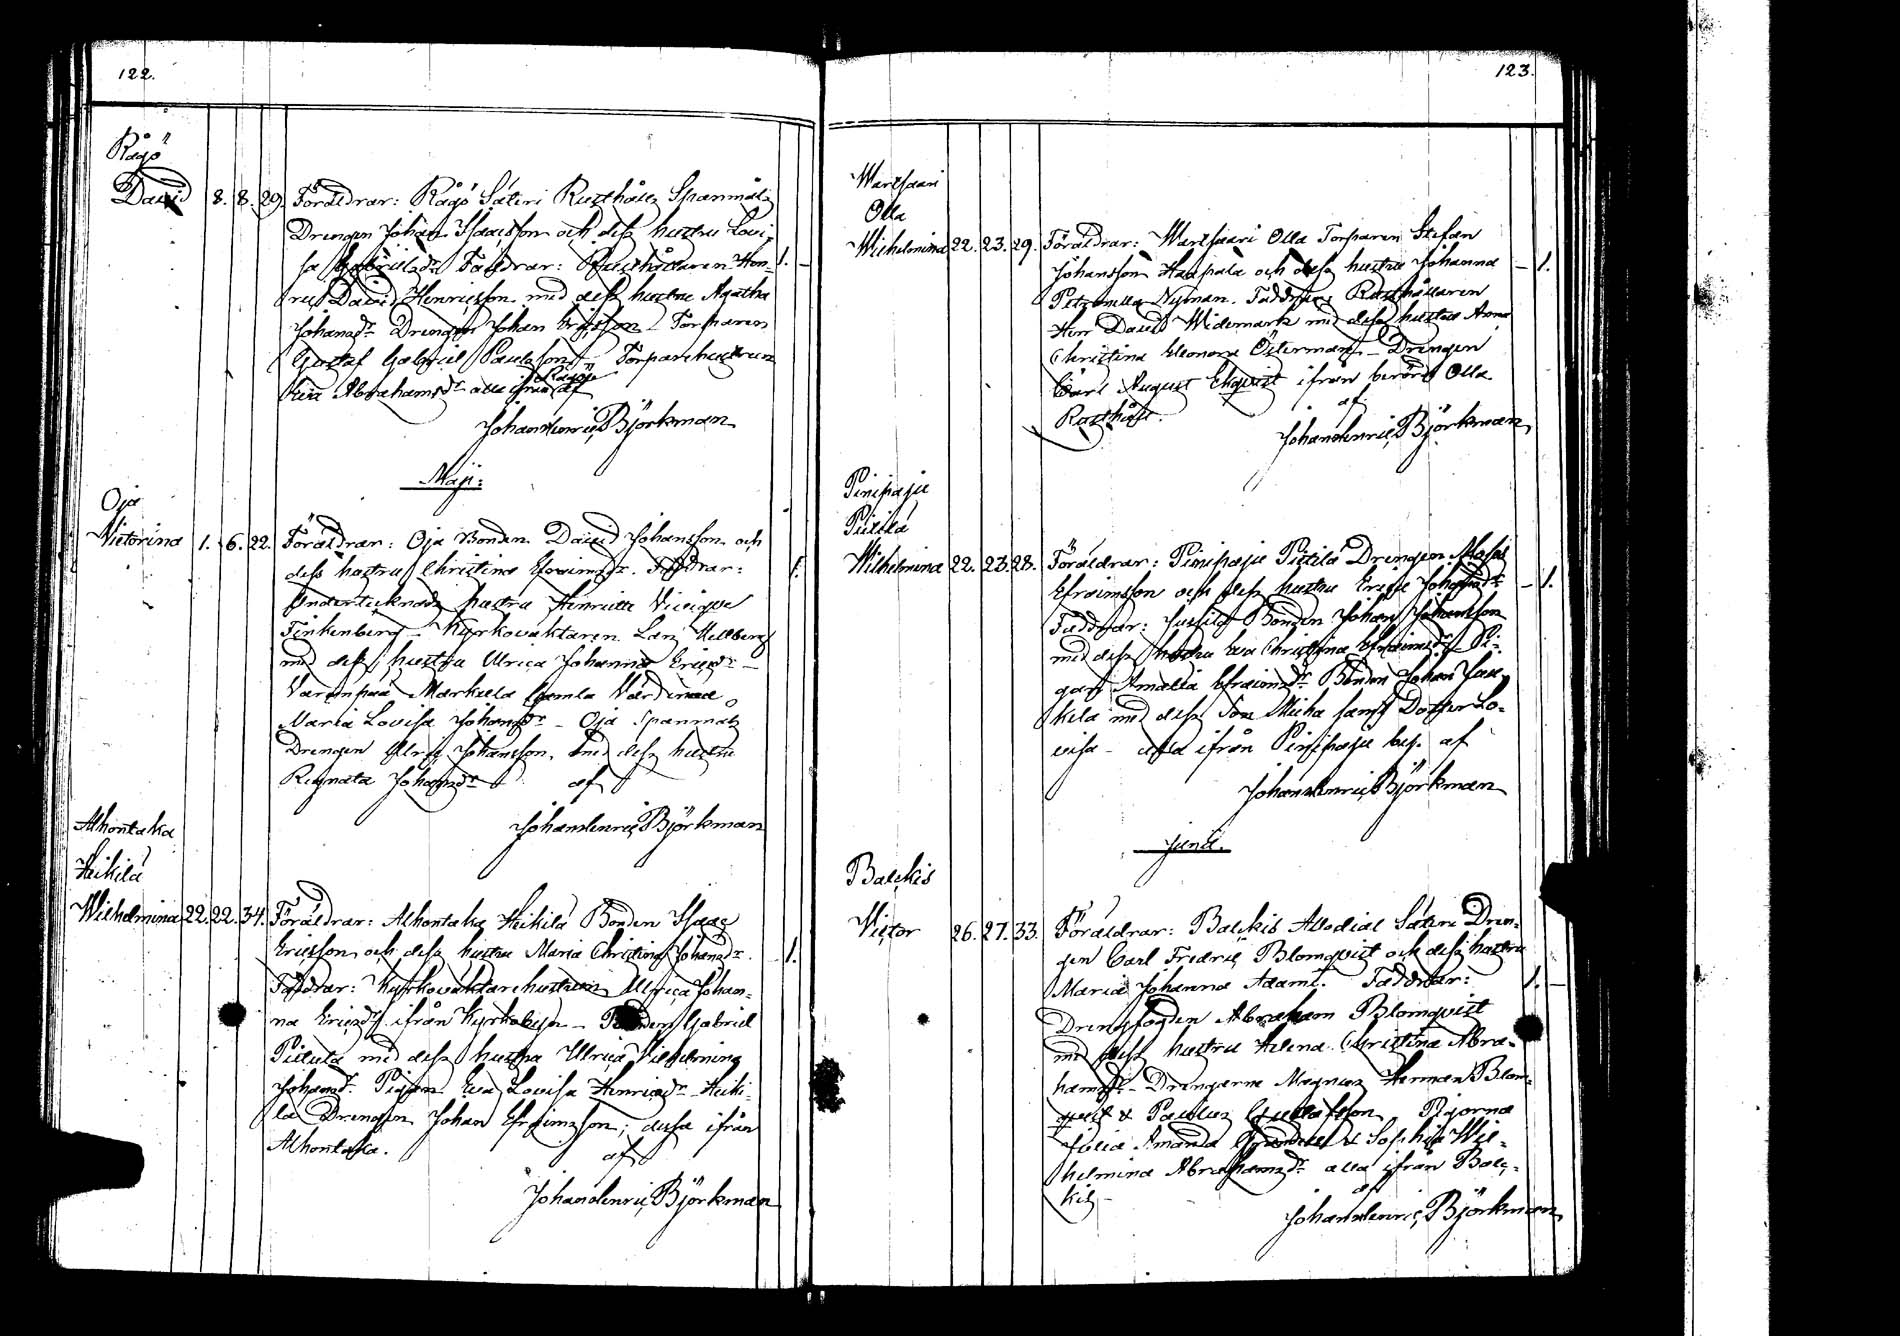 122.
Rågö
David 8. 8. 29. Föräldrar: Rågö Säteri Rusthålls Spanmåls
Drengen Johan Isaacsson och dess hustru Lovi=
sa Gabrielsdr. Faddrar: Rusthållaren Hen= 1. –
ric David Henricsson med dess hustru Agatha
Johansdr Drengen Johan Ericsson – Torparen
Gustaf Gabriel Paulsson – Torparehustrun
Abrahamsdr alla ifrån Rågö af
Johan Henric Björkman
Maji:
Oja
Victorina 1. 6. 22. Föräldrar: Oja Bonden David Johansson och
dess hustru Christina Efraimsdr. Faddrar: 1.
Undertecknads hustru Henriette
Finkenberg – Kyrkovaktaren Hellberg
med dess hustru Ulrica Johanna Ericsdr –
Varenpää Markula Gamla Värdinna
Maria Lovisa Johansdr – Oja Spanmåls
Drengen Johansson, med dess hustru
Regnata Johansdr – af
Johan Henric Björkman
Alhontaka
Heikilä
Wilhelmina 22. 22. 34. Föräldrar: Alhontaka Heikilä Bonden Isaac
Ericsson och dess hustru Maria Christina Johansdr. – 1.
Faddrar: Kyrkovaktarehustrun Ulrica Johan=
na Ericsdr ifrån Kyrkobyn – Bonden Gabriel
med dess hustru Ulrica Vilhelmina
Johansdr. Pigan Eva Lovisa Henricsdr – Heiki=
lä Drengen Johan Efraimsson; dessa ifrån
Alhontaka.
af
Johan Henric Björkman
123.
Olla
Wilhelmina 22. 23. 29. Föräldrar: Olla Torparen Stefan
Johansson Haapala och dess hustru Johanna – 1.
Petronella Nyman. Faddrar: Rusthållaren
Herr David Widemark med dess hustru Anna
Christina Eleonora Österman – Drengen
Carl August Ekqvist ifrån berörde Olla
Rusthåll. af
Johan Henric Björkman
Pinipaju
Pietilä
Wilhelmina 22. 23. 28. Föräldrar: Pinipaju Pietilä Drengen
Efraimsson och dess hustru Johansdr – 1.
Faddrar: Jussila Bonden Johan Johansson
med dess hustru Eva Christina Efraimsdr – Pi=
gan Amalia Efraimsdr Bonden Johan
med dess Son Micha samt Dotter Lo=
visa – alla ifrån Pinipaju by. af
Johan Henric Björkman
Junii.
Balckis
Victor 26. 27. 33. Föräldrar: Balckis Allodial Säteri Dren=
gen Carl Fredric Blomqvist och dess hustru
Maria Johanna Adami. Faddrar: 1. –
Drengfogden Abraham Blomqvist
med dess hustru Helena Christina Abra=
hamsdr – Drengarne Magnus Herman Blom=
qvist & Paulus Gustafsson, Pigorna
Julia Amanda & Sophia Wil=
helmina Abrahamsdr alla ifrån Balc=
kis – af
Johan Henric Björkman